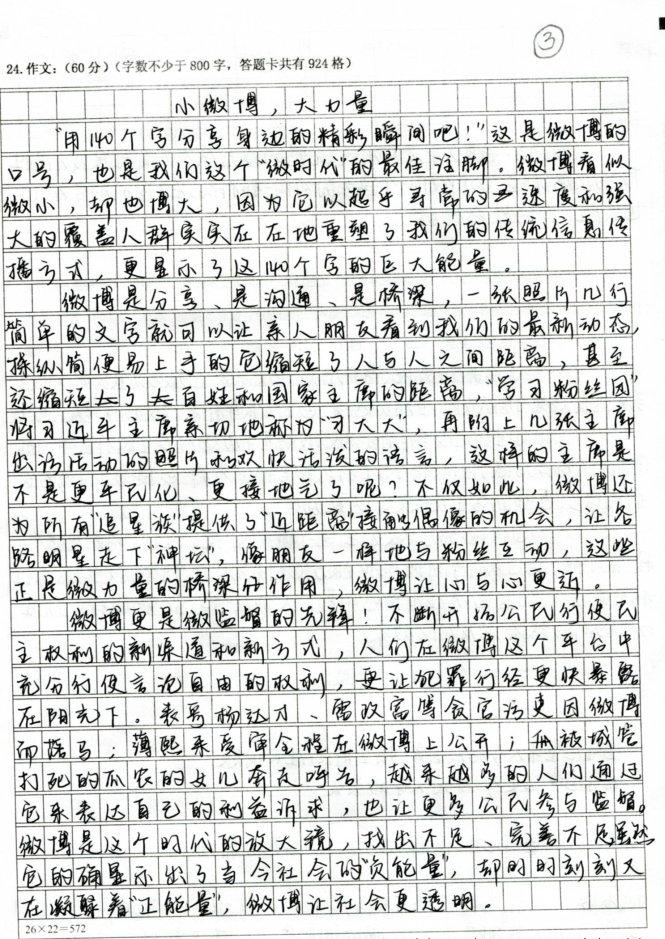 ③
24.作文:(60分)(字数不少于800字，答题卡共有924格)
小微博，大力量
"用140个字分享身边的精彩瞬间吧!"这是微博的
口号，也是我们这个"微时代"的最佳注脚。微博看似
微小，却也博大，因为它以超乎寻常的速度和强
大的覆盖人群实实在在地重塑了我们的传统信息传
播方式，更显示了这140个字的巨大能量。
微博是分享、是沟通、是桥梁，一张照片几行
简单的文字就可以让亲人朋友看到我们的最新动态，
操纵简便易上手的它缩短了人与人之间距离，甚至
还缩短了百姓和国家主席的距离，"学习粉丝团"
将习近平主席亲切地称为"习大大"，再附上几张主席
出访活动的照片和欢快活泼的语言，这样的主席是
不是更平民化、更接地气了呢?不仅如此，微博还
为所有"追星族"提供了"近距离"接触偶像的机会，让各
路明星走下"神坛"，像朋友一样地与粉丝互动，这些
正是微力量的桥梁作用，微博让心与心更近。
微博更是微监督的先锋!不断开拓公民行使民
主权利的新渠道和新方式，人们在微博这个平台中
充分行使言论自由的权利，更让犯罪行径更快暴露
在阳光下。表哥杨达才、雷政富等贪官污吏因微博
而落马；薄熙来受审全程在微博上公开；瓜被城管
打死的瓜农的女儿奔走呼告，越来越多的人们通过
它来表达自己的利益诉求，也让更多公民参与监督。
微博是这个时代的放大镜，找出不足、完善不足虽然
它的确显示出了当今社会的"负能量"，却时时刻刻又
在凝聚着"正能量"，微博让社会更透明。
26×22=572